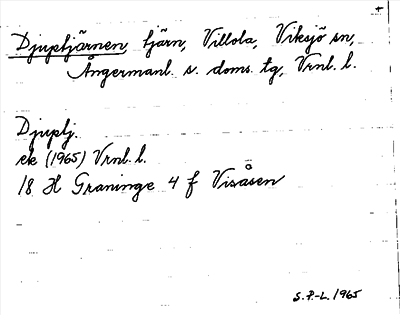 Djuptjärnen, tjärn, Villola, Viksjö sn,
Ångermanl. s. doms. tg, Vrnl. l.
Djuptj.
ek (1965) Vrnl. l.
18 H Graninge 4 f Visåsen
S.P.-L. 1965